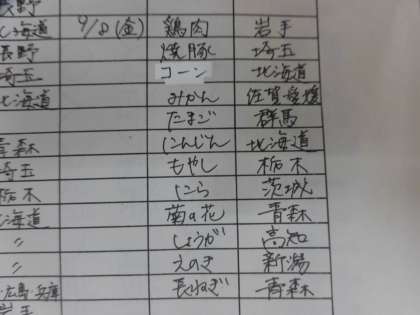 長野
北海道 9/8(金) 鶏肉 岩手
長野 焼豚 埼玉
埼玉 コーン 北海道
北海道 みかん 佐賀 愛媛
たまご 群馬
青森 にんじん 北海道
埼玉 もやし 栃木
栃木 にら 茨城
北海道 菊の花 青森
〃 しょうが 高知
〃 えのき 新潟
広島・兵庫 長ねぎ 青森
岩手